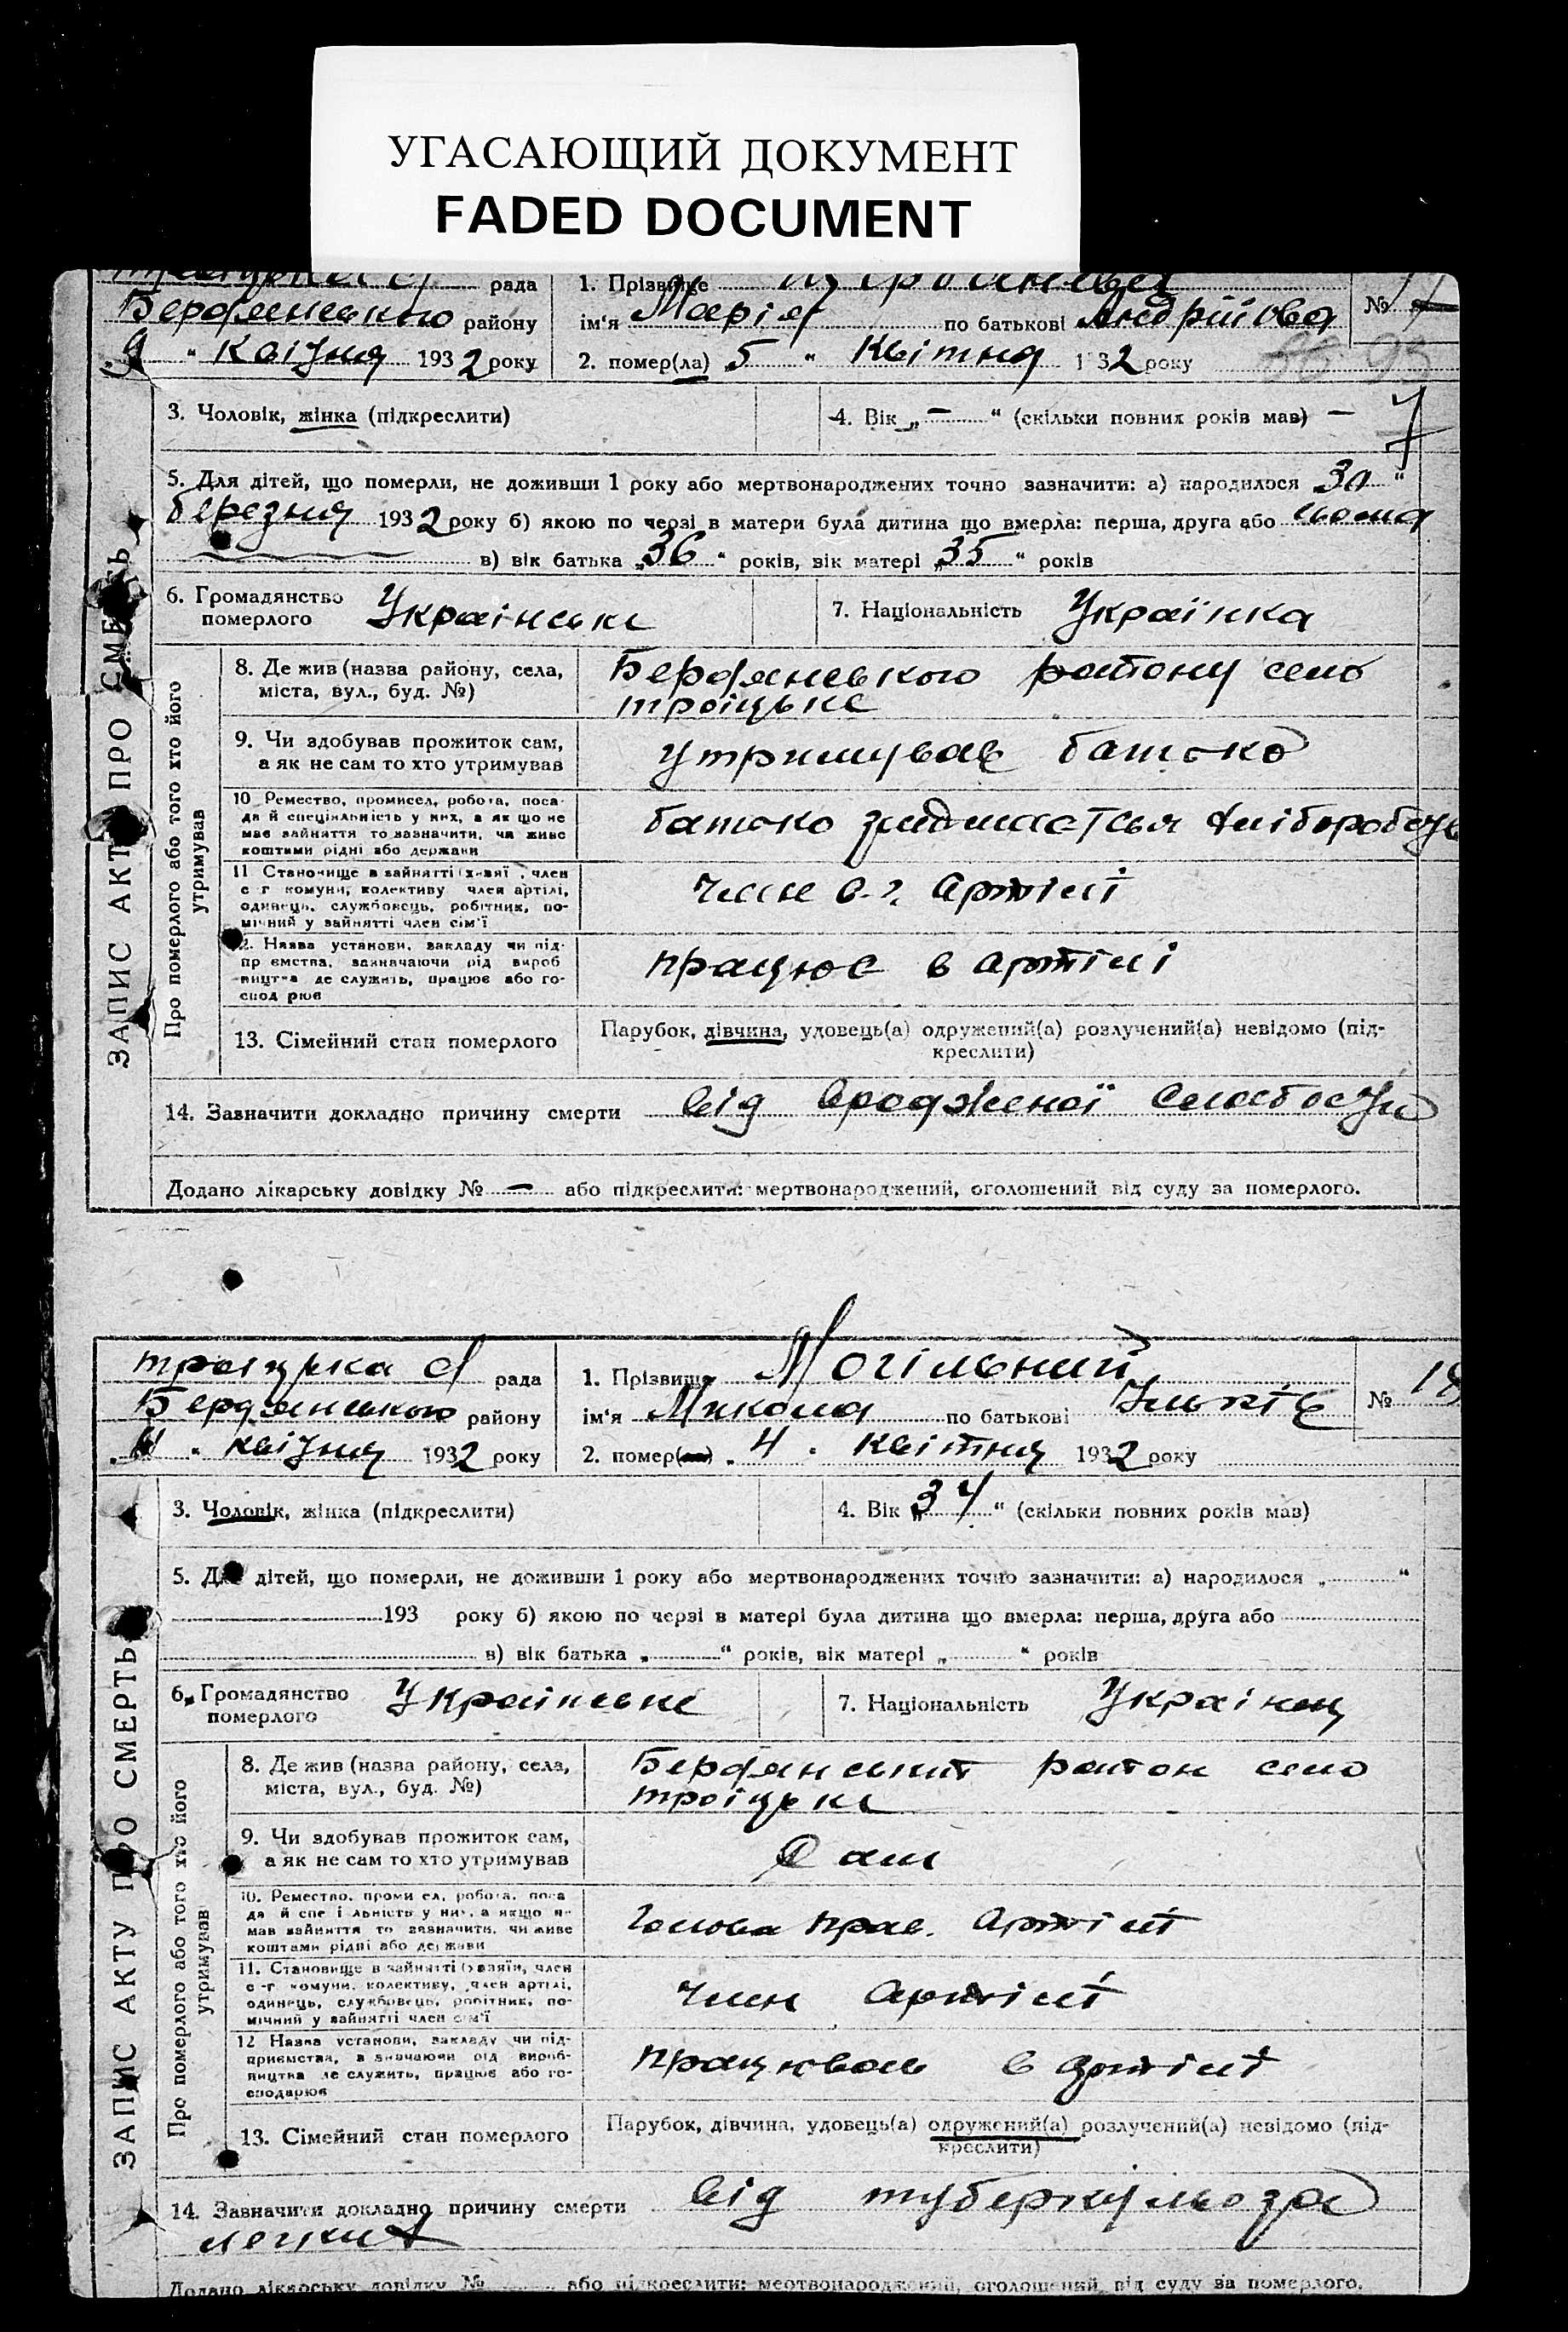 УГАСАЮЩИЙ ДОКУМЕНТ
FADED DOCUMENT
рада 1. Прізвище
Бердянського району ім'я Марія по батькові Андріївна №
„9“ квітня 1932 року 2. помер(ла) „5“ Квітня 1932 року
3. Чоловік, жінка (підкреслити) 4. Вік „—“ (скільки повних років мав) —
5. Для дітей, що померли, не доживши 1 року або мертвонароджених точно зазначити: а) народилося 30“
березня 1932 року б) якою по черзі в матери була дитина що вмерла: перша, друга або сьома
в) вік батька „36“ років, вік матері „35“ років
6. Громадянство
померлого Українське 7. Національність Українка
ЗАПИС АКТУ ПРО СМЕРТЬ
Про померлого або того хто його
утримував
8. Де жив (назва району, села,
міста, вул., буд. №) Бердянського району село
троіцьке
9. Чи здобував прожиток сам,
а як не сам то хто утримував утримував батько
10 Ремество, промисел, робота, поса-
да й спеціяльність у них, а як що не
має зайняття то зазначити, чи живе
коштами рідні або держави батько
11 Становище в зайнятті (х-зяї, член
с г комуни, колективу член артілі,
одинець, службовець, робітник, по-
мічний у зайнятті член сім'ї член с-г артілі
12. Назва установи, закладу чи під-
пр ємства, зазначаючи рід вироб
ництва де служить, працює або го-
спод рює працює в артілі
13. Сімейний стан померлого Парубок, дівчина, удовець(а) одружений(а) розлучений(а) невідомо (під-
креслити)
14. Зазначити докладно причину смерти від вродженої слабости
Додано лікарську довідку № — або підкреслити: мертвонароджений, оголошений від суду за померлого.
троіцька с/ рада 1. Прізвище Могільний
Бердянського району ім'я Микола по батькові Ільків № 18
квітня 1932 року 2. помер(ла) „4“ квітня 1932 року
3. Чоловік, жінка (підкреслити) 4. Вік „34“ (скільки повних років мав)
5. Для дітей, що померли, не доживши 1 року або мертвонароджених точно зазначити: а) народилося „ “
193 року б) якою по черзі в матері була дитина що вмерла: перша, друга або
в) вік батька „ “ років, вік матері „ “ років
6. Громадянство
померлого Українське 7. Національність Українец
ЗАПИС АКТУ ПРО СМЕРТЬ
Про померлого або того хто його
утримував
8. Де жив (назва району, села,
міста, вул., буд. №) Бердянський район село
троіцьке
9. Чи здобував прожиток сам,
а як не сам то хто утримував Сам
10. Ремество, проми ел, робота, поса
да й спе і льність у них, а якщо н-
мав зайняття то зазначити, чи живе
коштами рідні або держави Голова прав. Артілі
11. Становище в зайнятті (хазяїн, член
с-г комуни, колективу, член артілі,
одинець, службовець, робітник, по-
мічний у зайнятті член сім'ї член Артілі
12 Назва установи, закладу чи під-
приємства, зазначаючи рід вироб-
ництва де служить, працює або го-
сподарює працював в артілі
13. Сімейний стан померлого Парубок, дівчина, удовець(а) одружений(а) розлучений(а) невідомо (під-
креслити)
14. Зазначити докладно причину смерти від туберкульоза
легких
Додано лікарську довідку № або підкреслити: мертвонароджений, оголошений від суду за померлого.